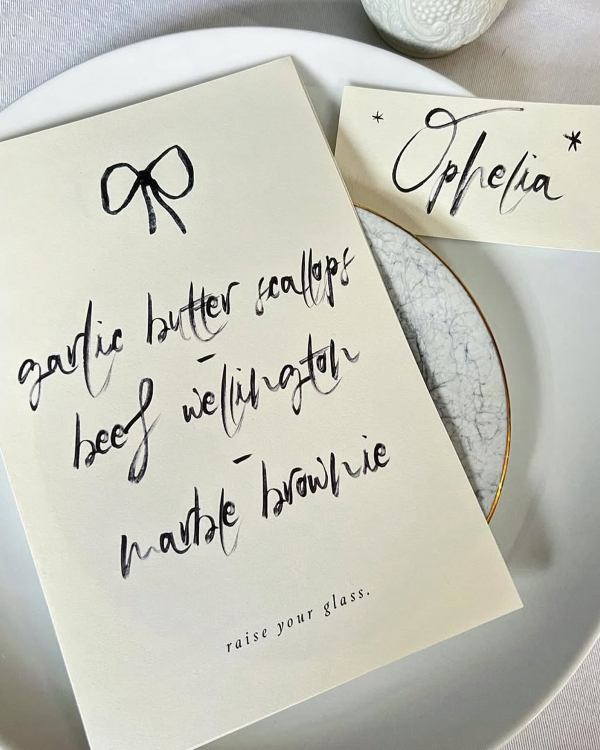 garlic butter scallops
-
beef wellington
-
marble brownie
raise your glass.
Ophelia